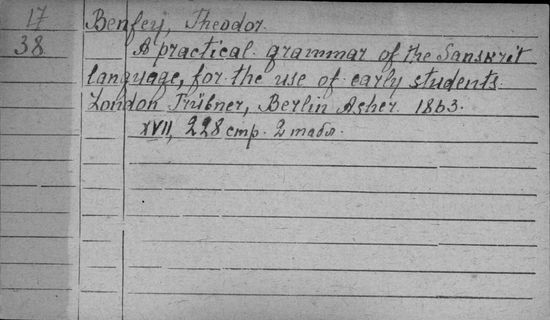 17 Benfey, Theodor.
38 A practical grammar of the Sanskrit
language, for the use of early students.
London Trübner, Berlin Asher. 1863.
XVII, 228 стр. 2 табл.